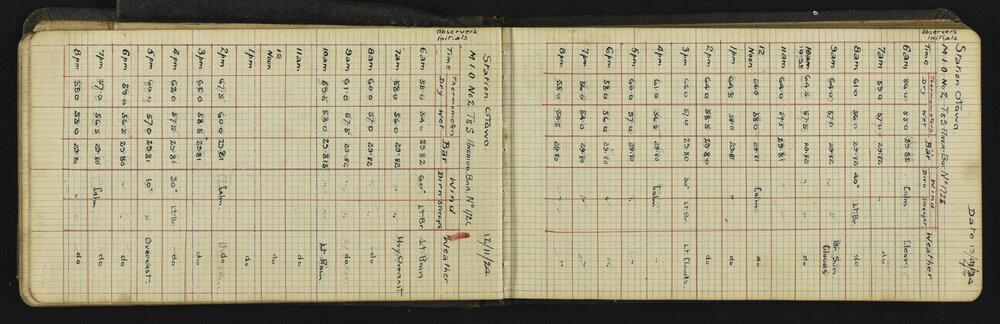 Date 13/11/24
Station Ottawa
M.I.O. No 2 T&S. Aneroid Bar. No 1726
Observer's Initials Time Thermometers Dry Wet Bar Wind Dir'n Strength Weather
6am 55.0 29.82 Calm Clear
7am 59.0 57.0 29.82 " do
8am 61.0 56.0 29.82 40° Lt Br. do
9am 64.0 57.0 29.82 " " Br. Sun Clouds
10am 64.5 57.5 29.82 " "
11am 57.5 29.81 " "
12 Noon 64.0 58.0 29.81 Calm. do
1pm 64.5 58.0 29.81 " do
2pm 64.0 58.5 29.80 " do
3pm 64.0 57.0 29.80 30° Lt Br. Lt Clouds
4pm 61.0 56.5 29.80 Calm "
5pm 60.0 57.0 29.80 " "
6pm 58.0 56.0 29.80 " "
7pm 56.0 29.80 " "
8pm 55.0 54.5 29.80 " "
12/11/24
Station Ottawa
M.I.O. No 2 T&S. Aneroid Bar. No 1726
Observer's Initials Time Thermometers Dry Wet Bar Wind Dir'n Strength Weather
6am 55.0 54.0 29.82 60° Lt Br. Lt Rain
7am 58.0 56.0 29.82 " " Hvy Overcast
8am 60.0 57.0 29.82 " " do
9am 61.0 57.5 29.82 " "
10am 63.5 58.0 29.815 " " Lt Rain
11am
12 Noon
1pm
2pm 67.5 60.0 29.81 Calm. do
3pm 65.0 58.5 29.81 " do
4pm 62.0 57.5 29.81 30° Lt Br. do
5pm 57.0 29.81 10° " Overcast.
6pm 59.0 56.5 29.80 " " do
7pm 57.0 56.5 29.80 Calm. do
8pm 55.0 53.0 29.80 " do